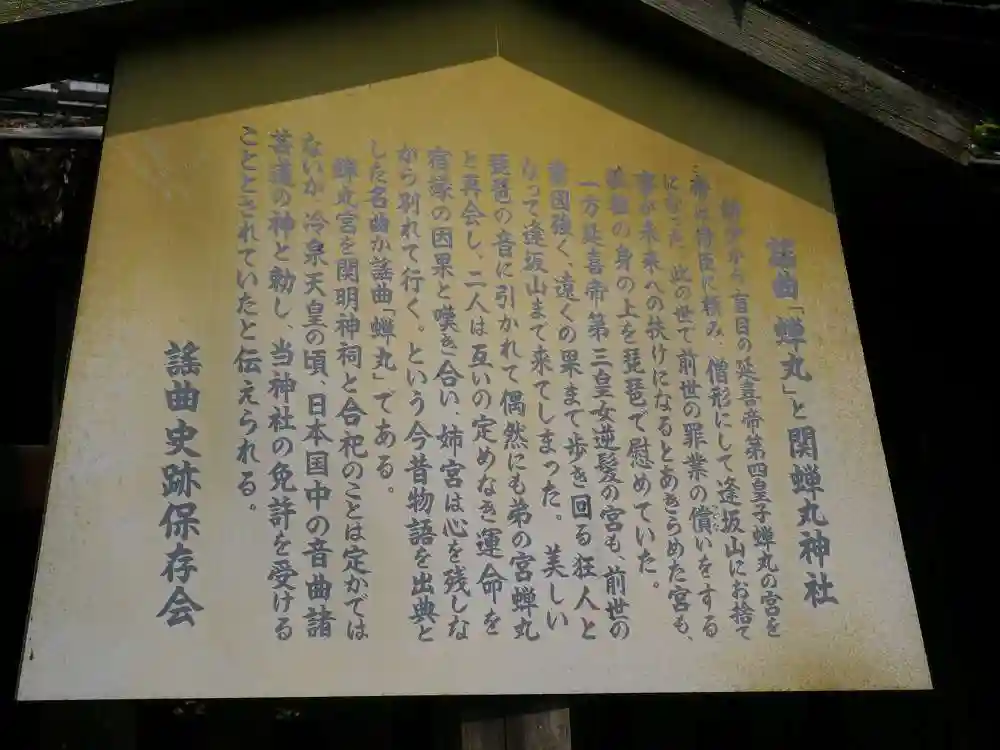 謡曲「蝉丸」と関蝉丸神社
幼少から盲目の延喜帝第四皇子蝉丸の宮を
帝は侍臣に頼み、僧形にして逢坂山にお捨て
になった。此の世で前世の罪業の償いをする
事が未来への扶けになるとあきらめた宮も、
孤独の身の上を琵琶で慰めていた。
一方延喜帝第三皇女逆髪の宮も、前世の
業因強く、遠くの果まで歩き回る狂人と
なって逢坂山まで来てしまった。美しい
琵琶の音に引かれて偶然にも弟の宮蝉丸
と再会し、二人は互いの定めなき運命を
宿縁の因果と嘆き合い、姉宮は心を残しな
がら別れて行く。という今昔物語を出典と
した名曲が謡曲「蝉丸」である。
蝉丸宮を関明神祠と合祀のことは定かでは
ないが、冷泉天皇の頃、日本国中の音曲諸
芸道の神と勅し、当神社の免許を受ける
こととされていたと伝えられる。
謡曲史跡保存会